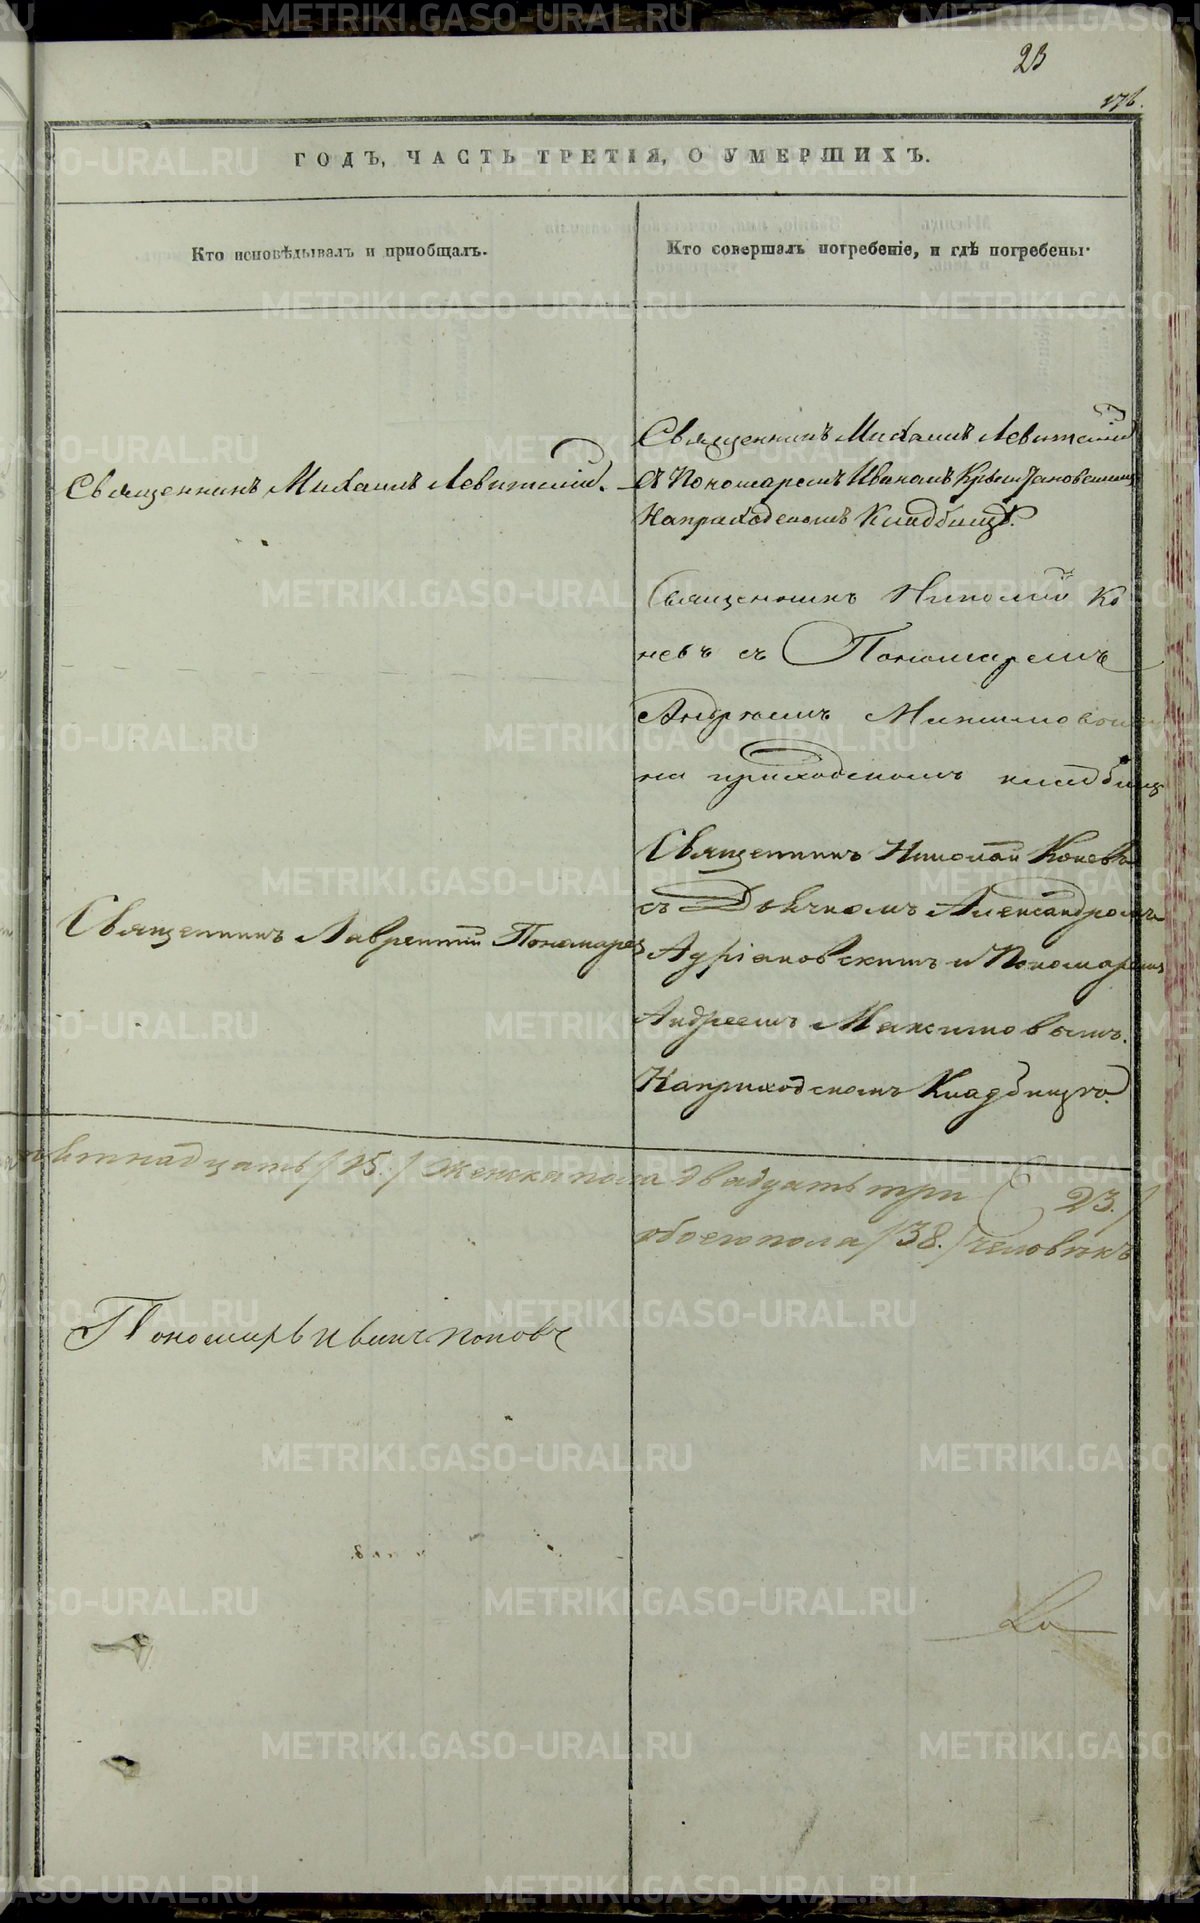 23
178.
ГОДЪ, ЧАСТЬ ТРЕТІЯ, О УМЕРШИХЪ.
Кто исповѣдывалъ и пріобщалъ.
Кто совершалъ погребеніе, и гдѣ погребены.
Священникъ Михаилъ Левитскій.
Священникъ Михаилъ Левитскій
съ Пономаремъ Иваномъ
На приходскомъ Кладбищѣ.
Священникъ Николай Ко
невъ съ Пономаремъ
Андреемъ Максимовымъ
на приходскомъ кладбищ
Священникъ Лаврентій Пономарев
Священникъ Николай Коневъ
съ Дьячкомъ Александромъ
Адріановскимъ и Пономаремъ
Андреемъ Максимовымъ.
На приходскомъ Кладбищѣ.
пятнадцать /15./ женска пола двадцать три ( 23./
обоего пола /38./ человѣкъ
Пономарь Иванъ Поповъ
METRIKI.GASO-URAL.RU